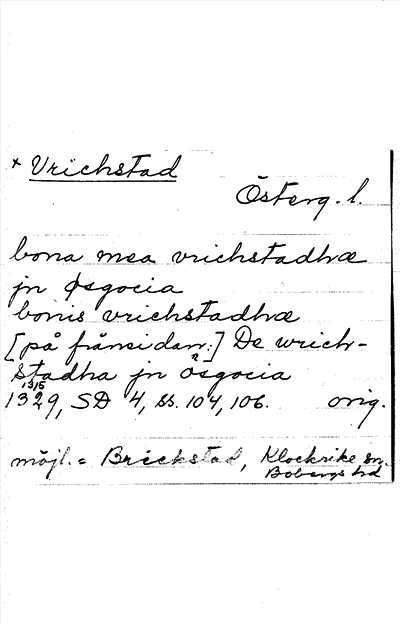 + Vrichstad
Österg. l.
bona mea vrichstadhæ
jn øsgocia
bonis vrichstadhæ
[på frånsidan:] De wrich-
stadha jn osgocia
13/5
1329, SD 4, ss. 104, 106. orig.
möjl. = Brickstad, Klockrike sn.
Bobergs hd